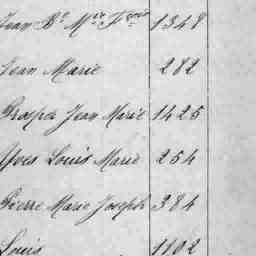 Jean Bte Mie Fçois 1348
Jean Marie 282
Prosper Jean Marie 1425
Yves Louis Marie 254
Pierre Marie Joseph 384
Louis 1102